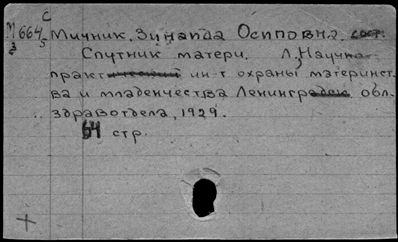 С
М 664 Мичник, Зинаида Осиповна, сост.
3 5
Спутник матери. Л., Научно-
практический ин-т охраны материнст-
ва и младенчества Ленинградск. обл.
здравотдела, 1929.
64 стр.